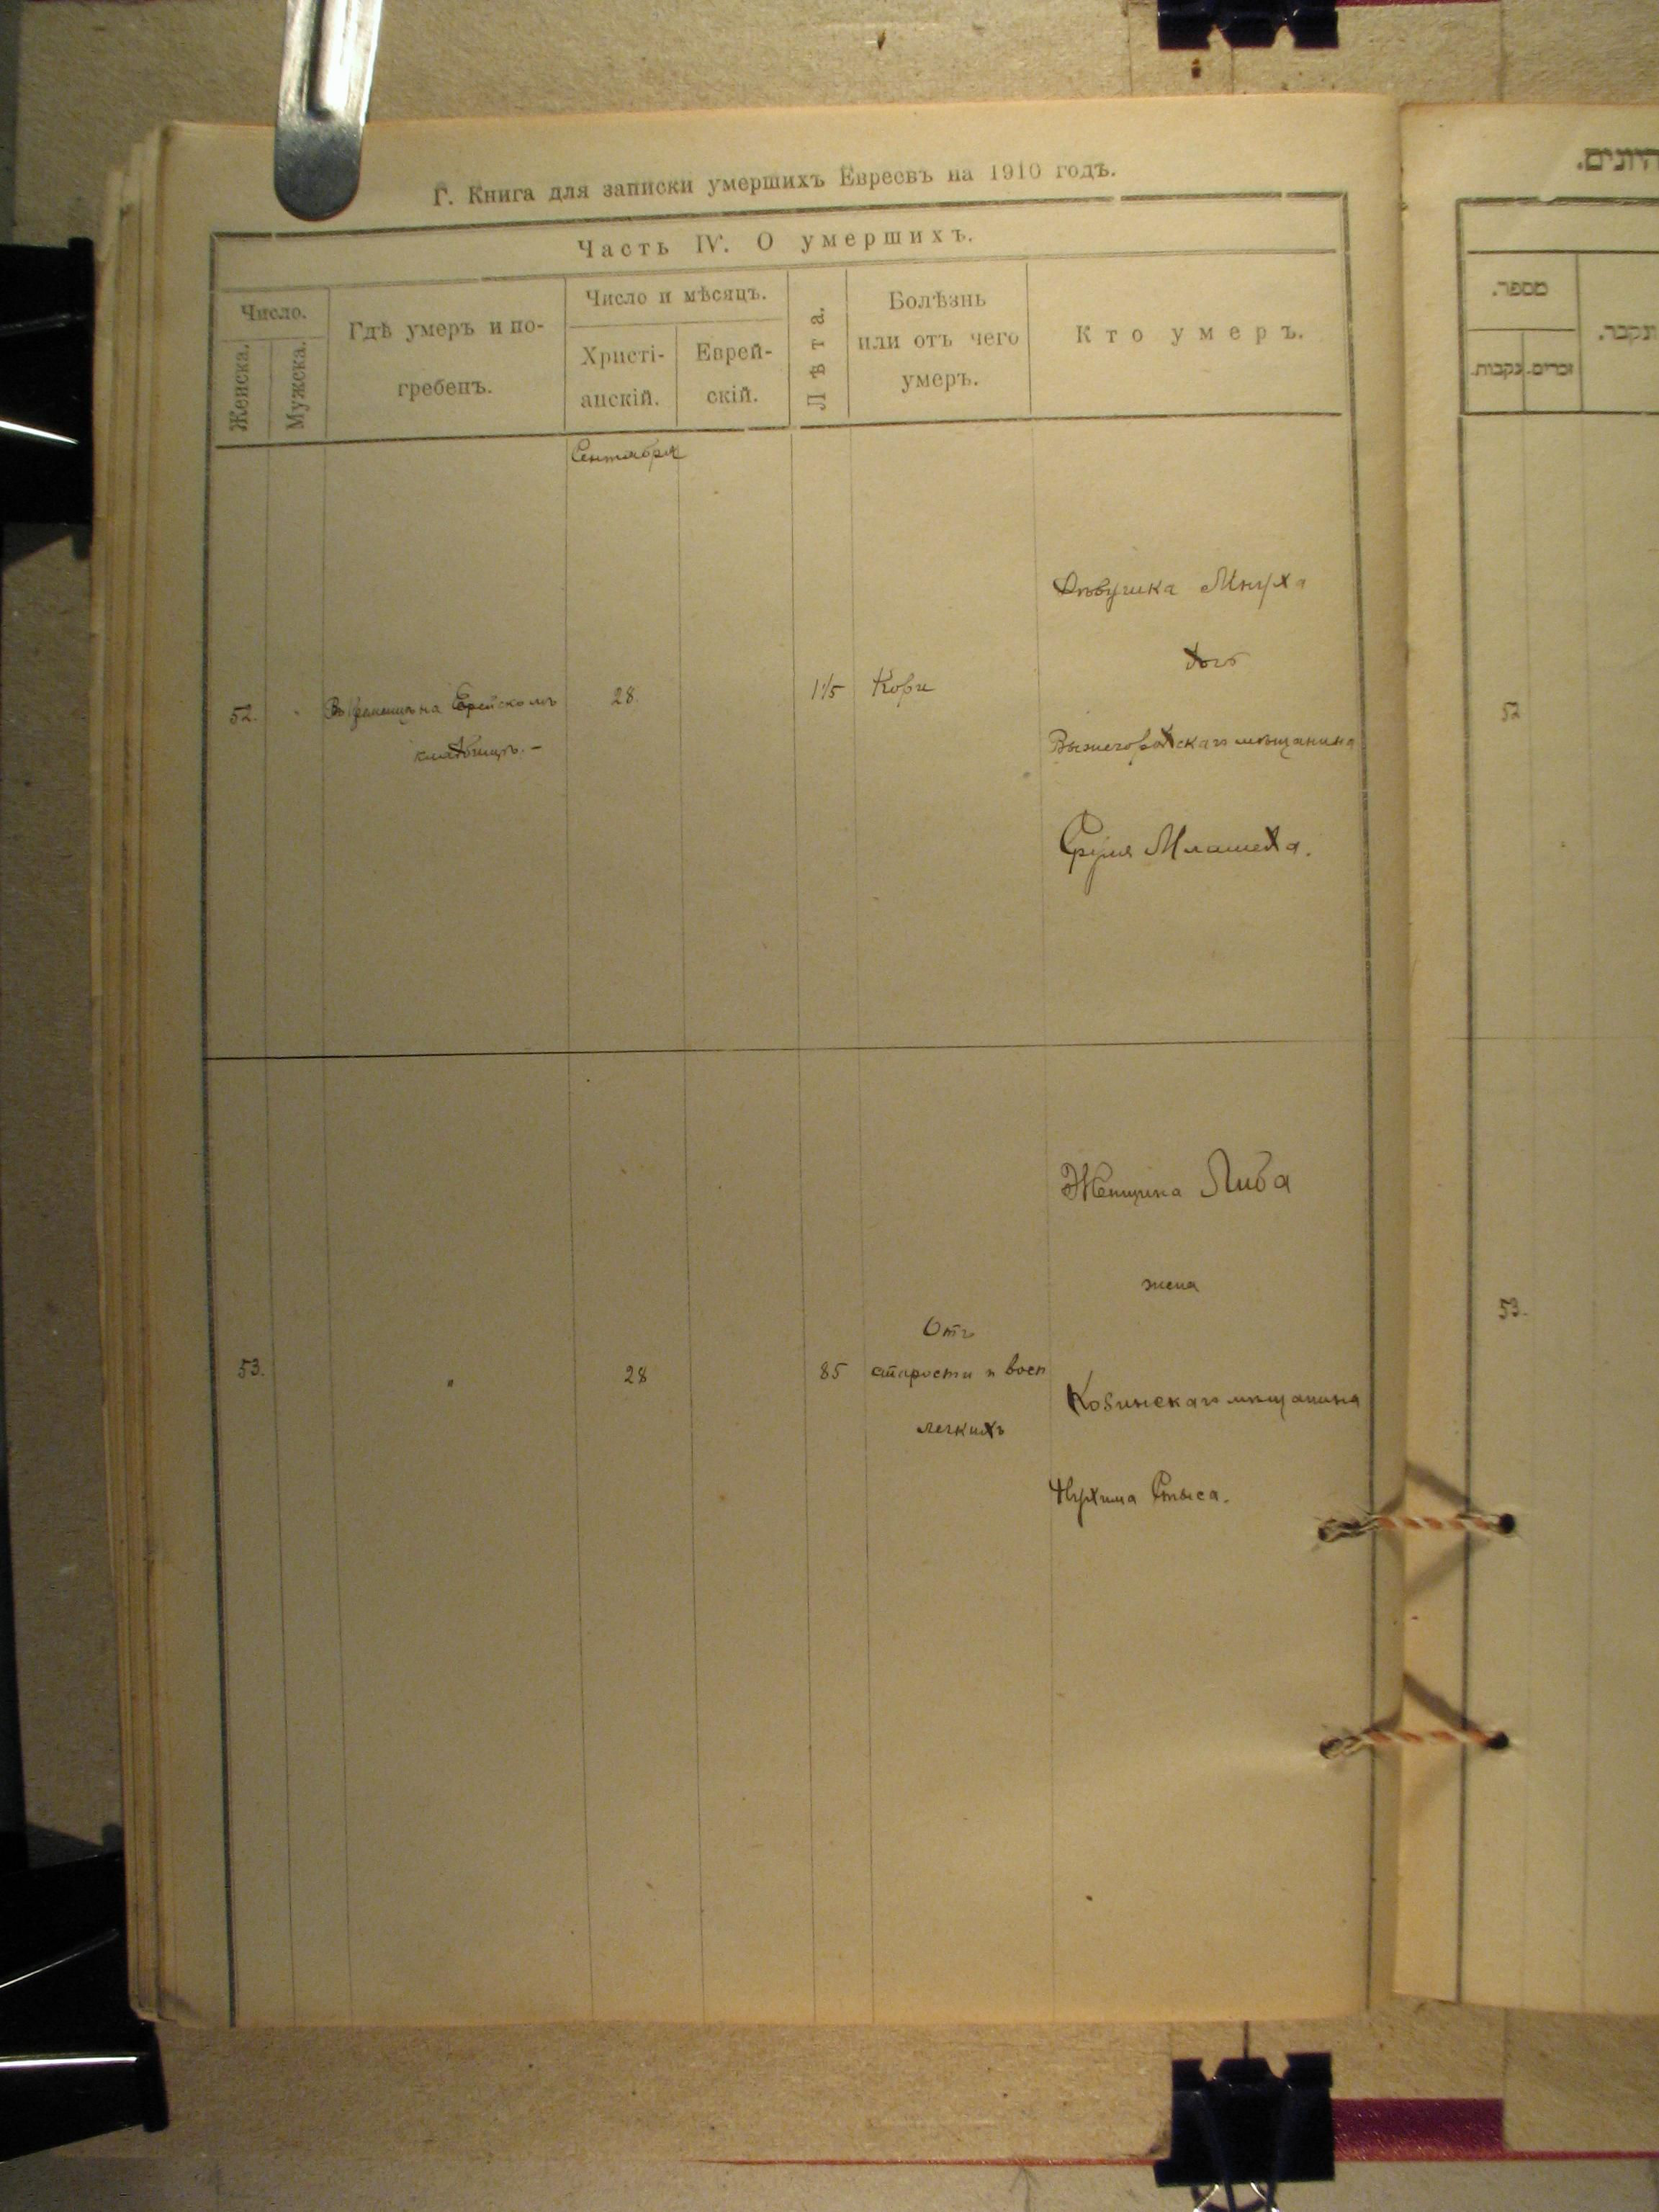 Г. Книга для записки умершихъ Евреевъ на 1910 годъ.
Часть IV. О умершихъ.
Число.
Женска.
Мужска.
Гдѣ умеръ и по-
гребенъ.
Число и мѣсяцъ.
Христі-
анскій.
Еврей-
скій.
Лѣта.
Болѣзнь
или отъ чего
умеръ.
Кто умеръ.
Сентабря
52.
на Еврейскомъ
кладбищѣ. –
28.
Кори
Дѣвушка Мнуха
дочь
Вышегородскаго мѣщанина
Сруля
53.
"
28
85
Отъ
старости и восп
легкихъ
Женщина Либа
жена
мѣщанина
Нухима Стыса.
היונים.
מספר.
זכרים.
נקבות.
ונקבר.
52
53.